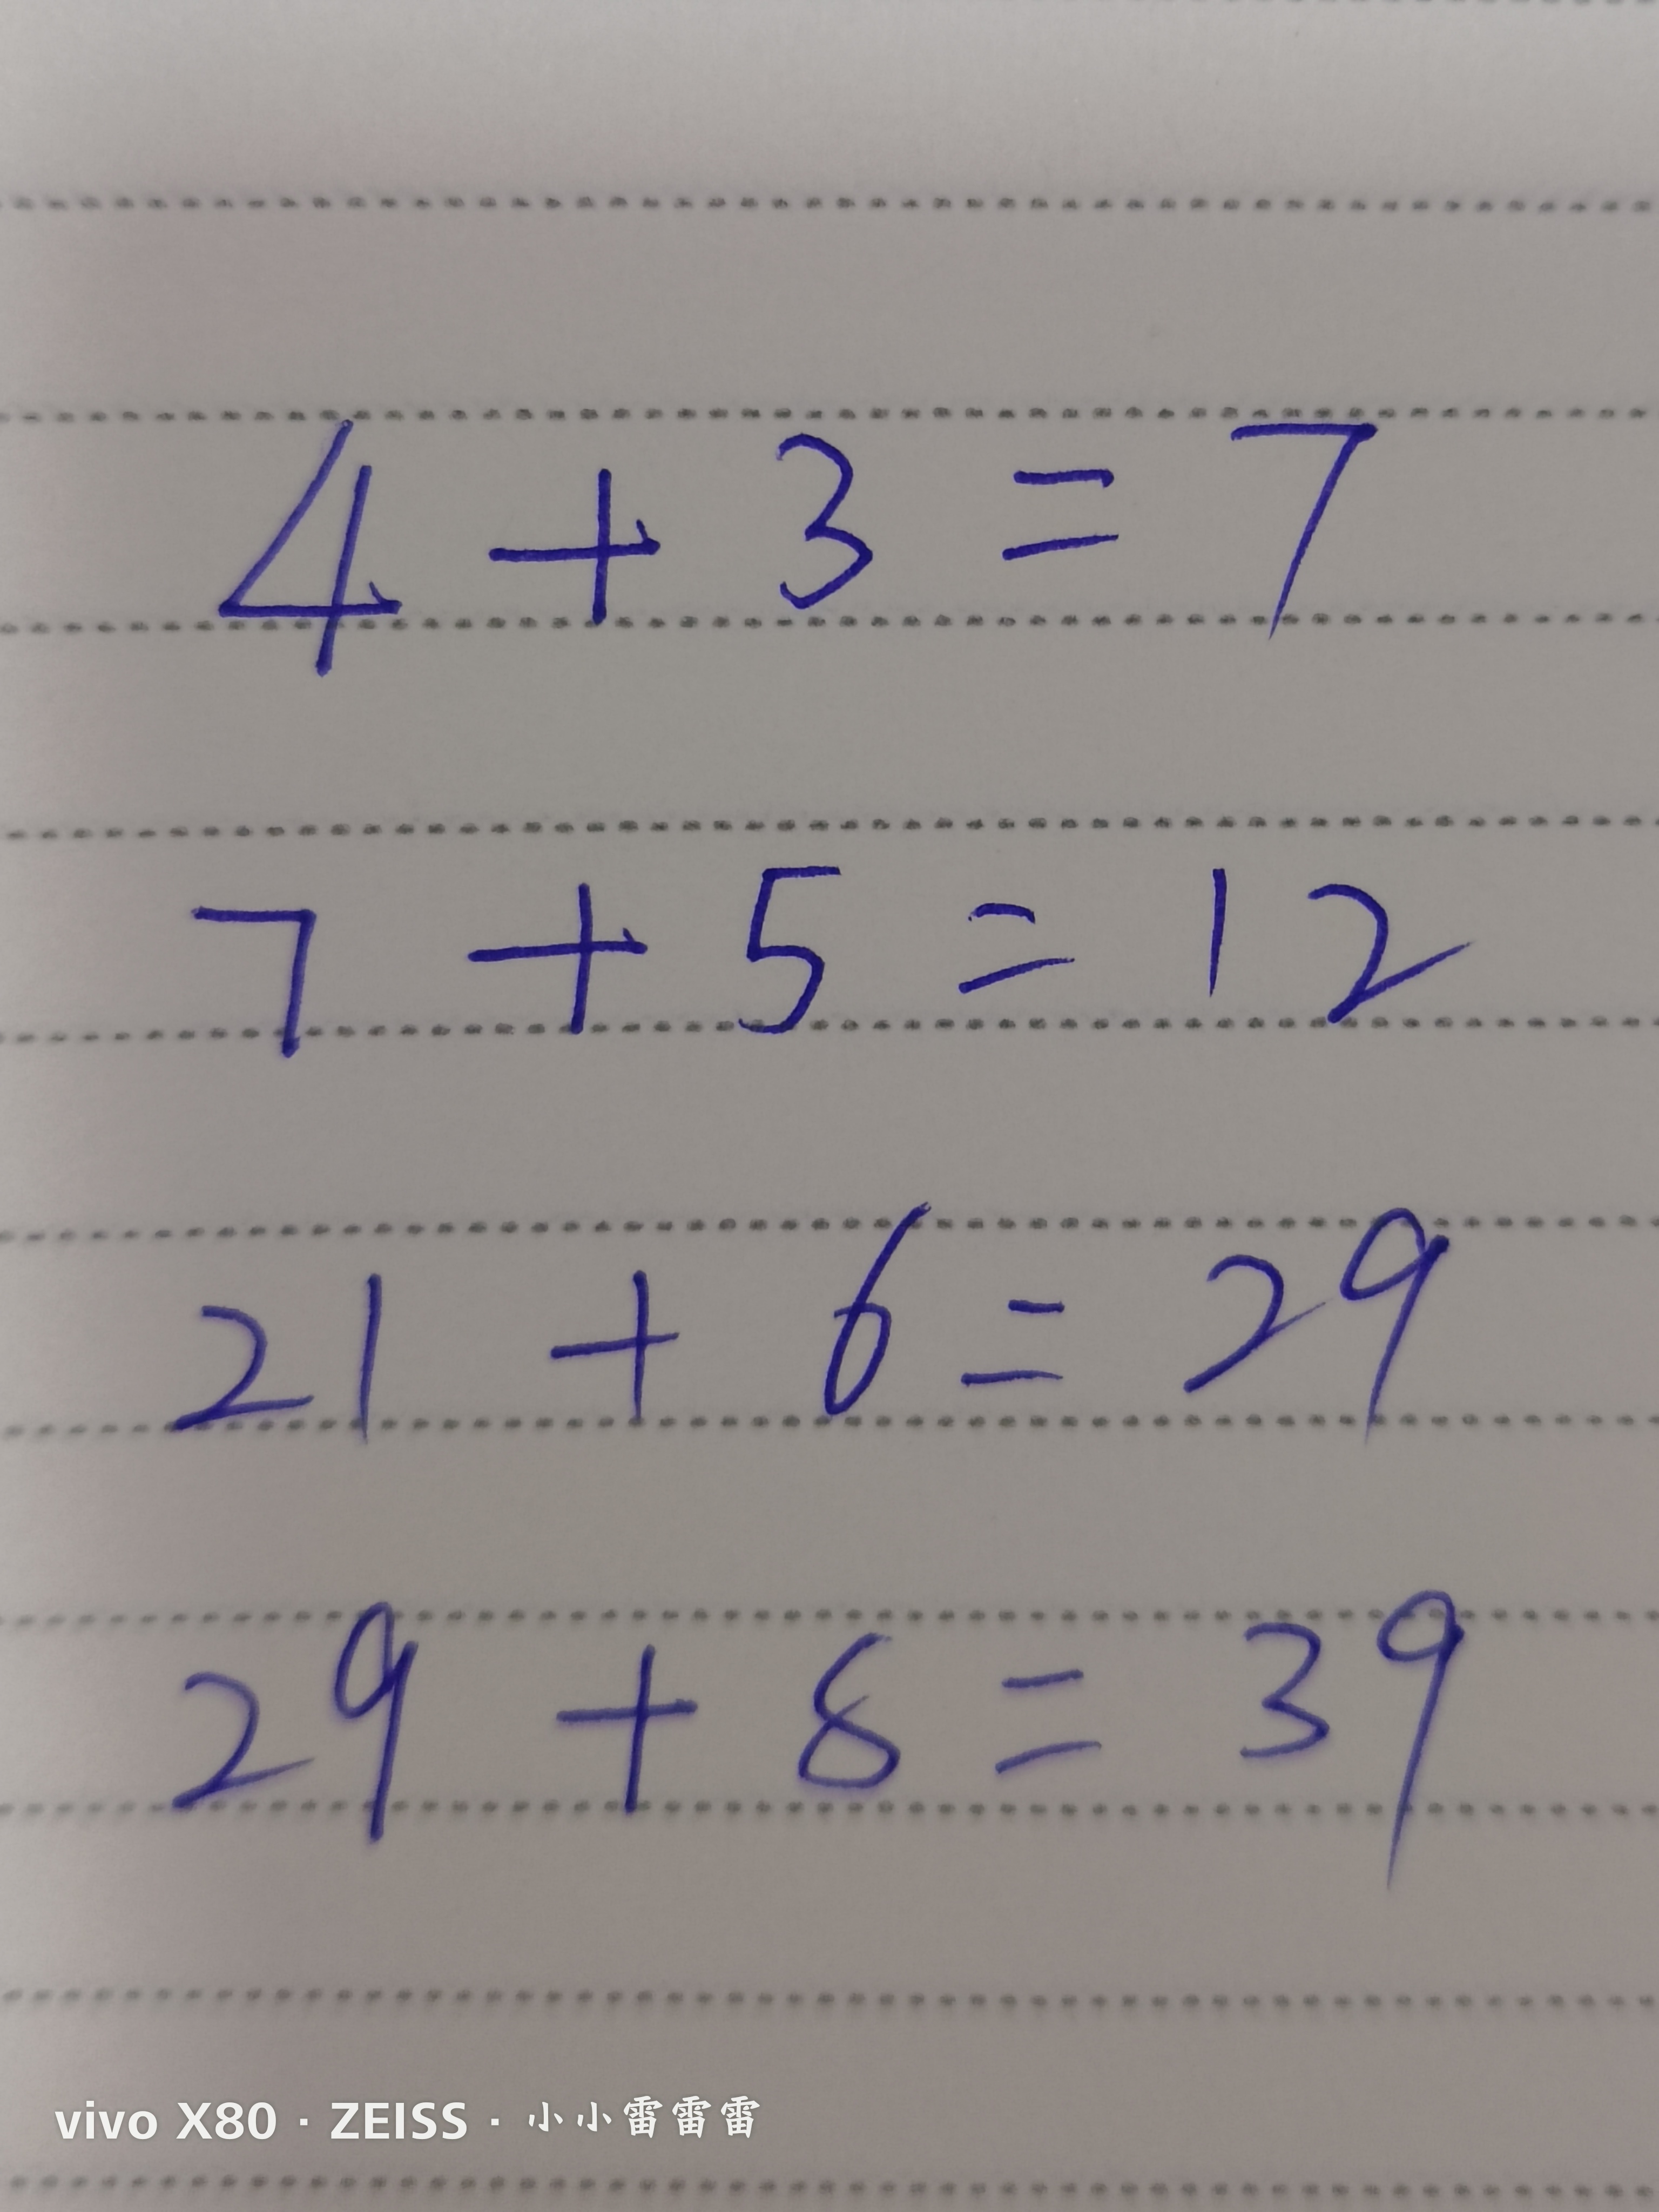 4 + 3 = 7
7 + 5 = 12
21 + 6 = 29
29 + 8 = 39
vivo X80 · ZEISS · 小小雷雷雷